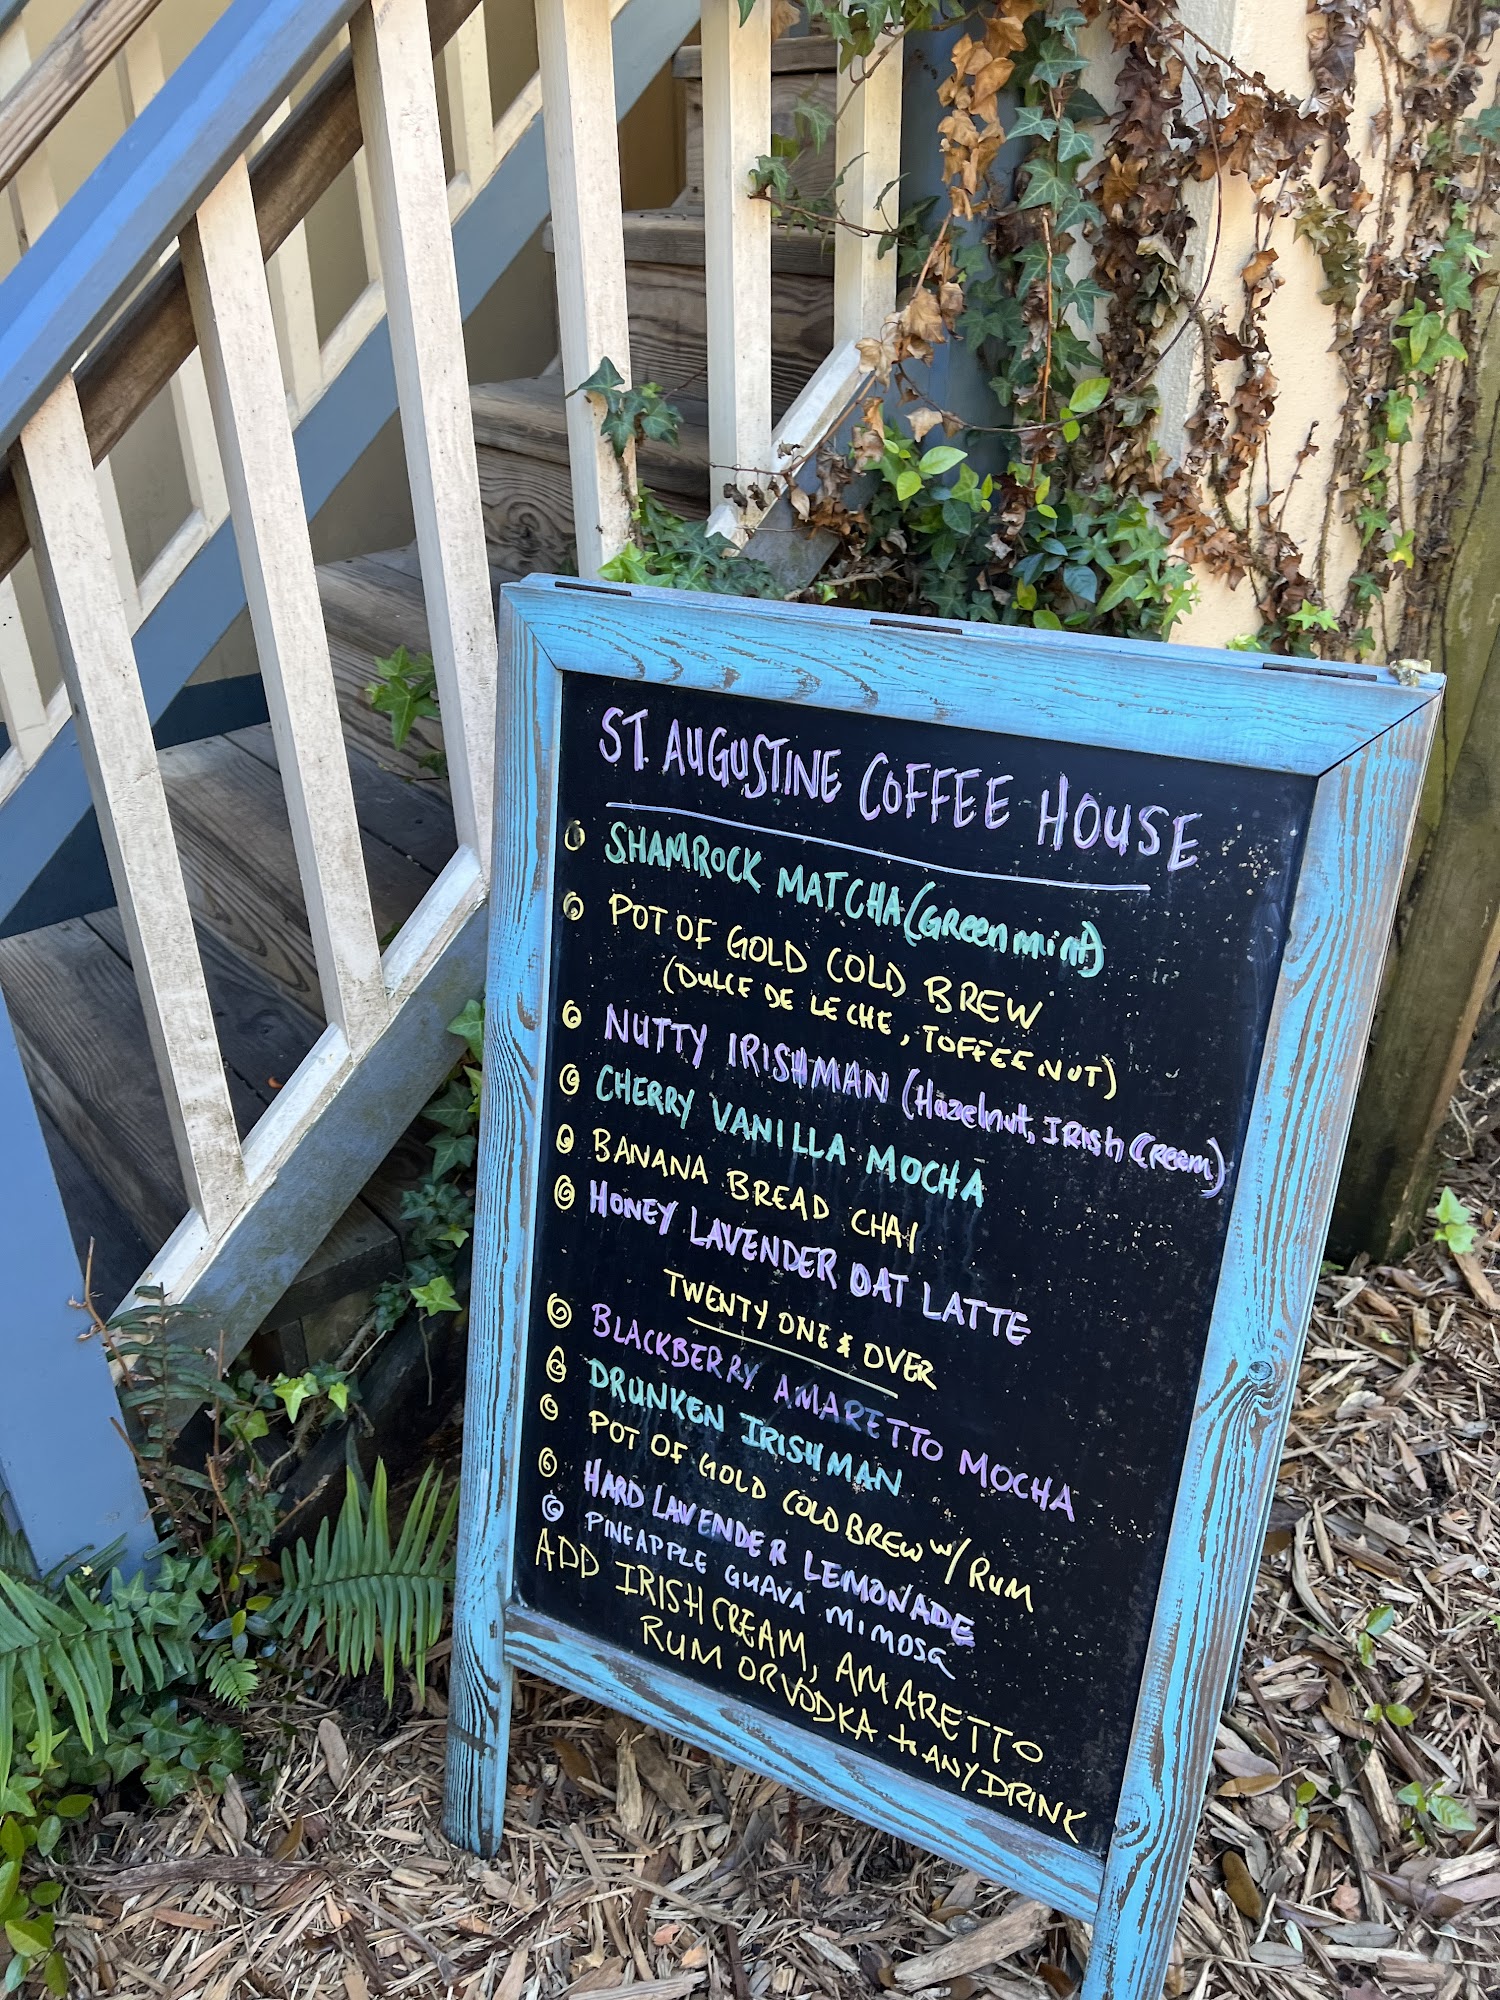 ST. AUGUSTINE COFFEE HOUSE
SHAMROCK MATCHA (Green mint)
POT OF GOLD COLD BREW
(DULCE DE LECHE, TOFFEE NUT)
NUTTY IRISHMAN (Hazelnut, IRish Cream)
CHERRY VANILLA MOCHA
BANANA BREAD CHAI
HONEY LAVENDER OAT LATTE
TWENTY ONE & OVER
BLACKBERRY AMARETTO MOCHA
DRUNKEN IRISHMAN
POT OF GOLD COLD BREW w/ RUM
HARD LAVENDER LEMONADE
PINEAPPLE GUAVA MIMOSA
ADD IRISH CREAM, AMARETTO
RUM OR VODKA to ANY DRINK